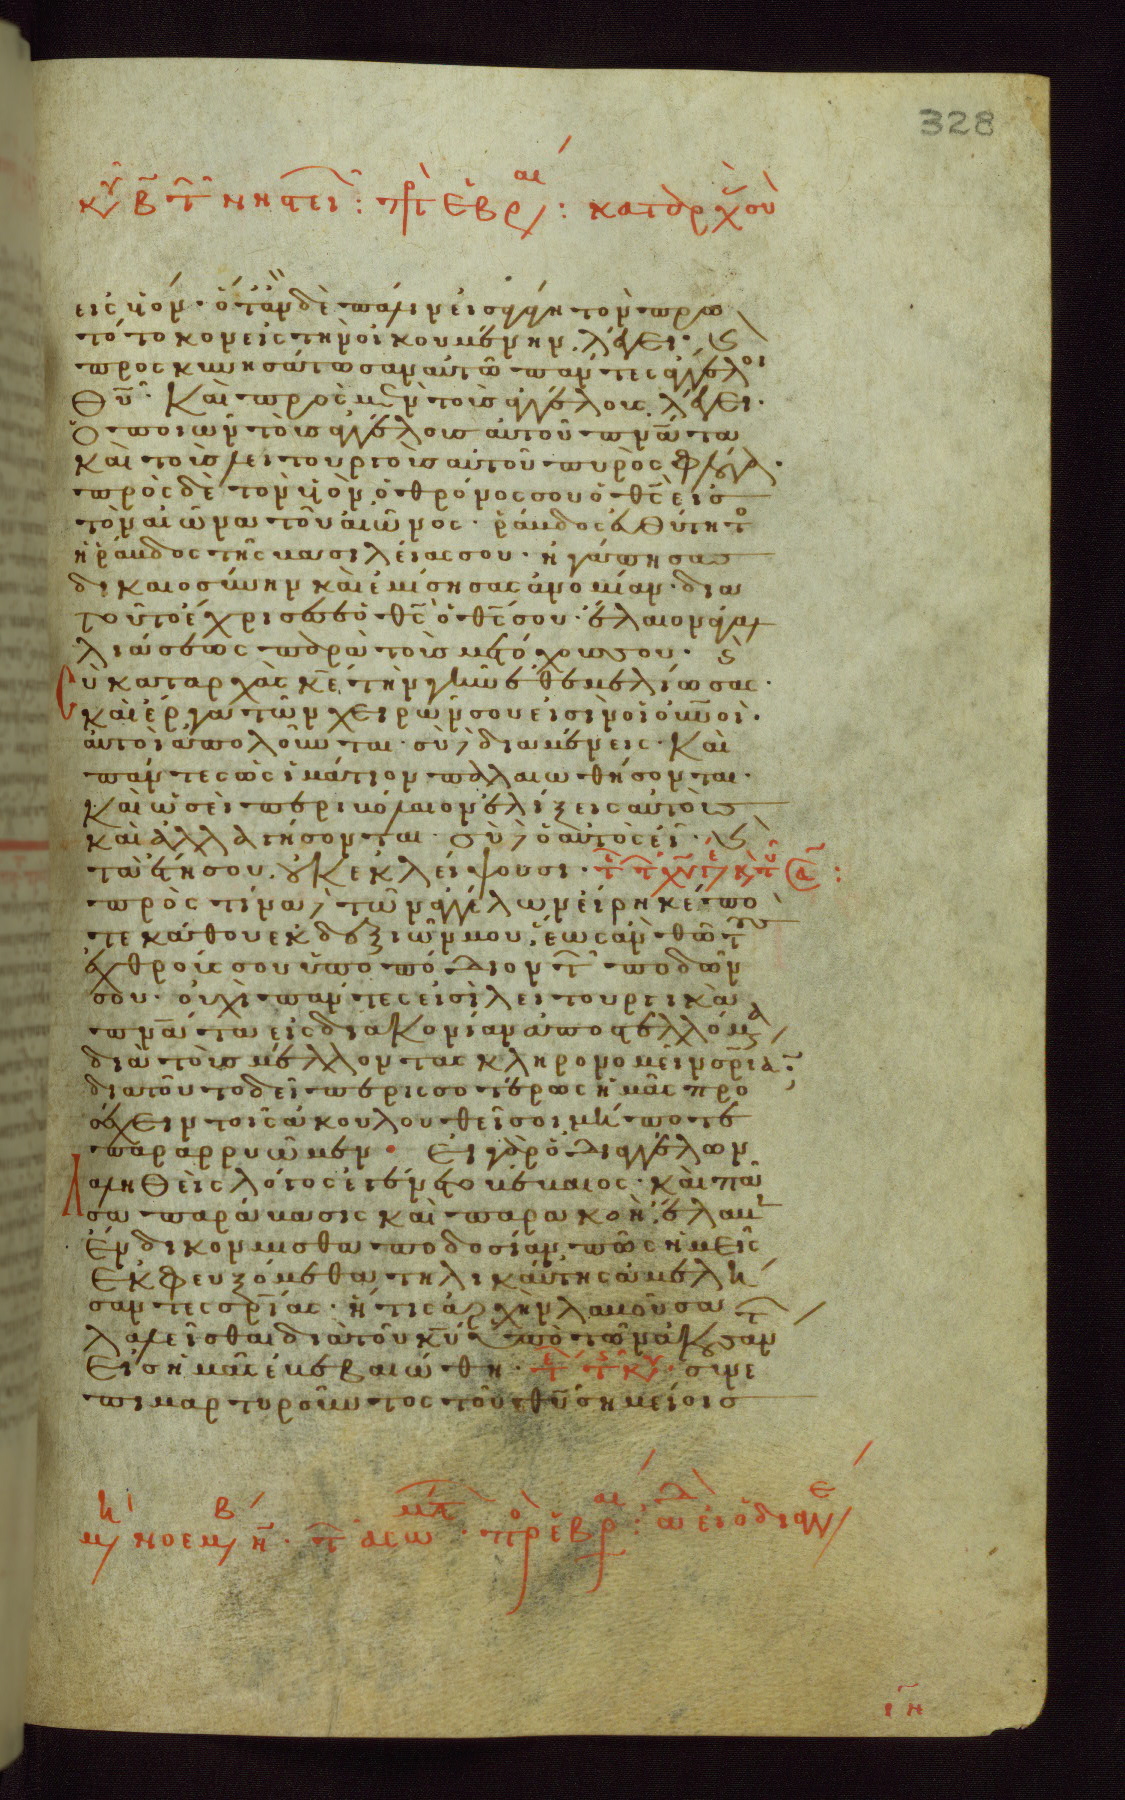 328
κυ β τ νηστει: πρ εβρ: κατ αρχ συ
εις υἱόν· ὅταν δὲ πάλιν εἰσαγάγη τὸν πρω
τότοκον εἰς τὴν οἰκουμένην λέγει· καὶ
προσκυνησάτωσαν αὐτῶ πάντες ἄγγελοι
θυ· Καὶ πρὸς μὲν τοὺς ἀγγέλους λέγει·
Ὁ ποιῶν τοὺς ἀγγέλους αὐτοῦ πνατα
καὶ τοὺς λειτουργοὺς αὐτοῦ πυρὸς φλόγα·
πρὸς δὲ τὸν υἱόν, ὁ θρόνος σου ὁ θς εἰς
τὸν αἰῶνα τοῦ αἰῶνος· ῥάβδος εὐθύτητο
ἡ ῥάβδος τῆς βασιλείας σου· ἠγάπησας
δικαιοσύνην καὶ ἐμίσησας ἀνομίαν· δια
τοῦτο ἔχρισέ σε ὁ θς ὁ θς σου· ἔλαιον ἀγαλ
λιάσεως παρὰ τοὺς μετόχους σου· καὶ
Σὺ καταρχὰς κε τὴν γῆν ἐθεμελίωσας·
καὶ ἔργα τῶν χειρῶν σου εἰσὶν οἱ οὐνοὶ·
αὐτοὶ ἀπολοῦνται· σὺ δὲ διαμένεις· Καὶ
πάντες ὡς ἱμάτιον παλαιωθήσονται·
Καὶ ὡσεὶ περιβόλαιον ἑλίξεις αὐτοὺς
καὶ ἀλλαγήσονται· σὺ δὲ ὁ αὐτὸς εἶ· καὶ
τὰ ἔτη σου οὐκ ἐκλείψουσι·
πρὸς τίνα δὲ τῶν ἀγγέλων εἴρηκέ πο
τε κάθου ἐκ δεξιῶν μου, ἕως ἂν θῶ τοὺς
ἐχθρούς σου ὑποπόδιον τῶν ποδῶν
σου· οὐχὶ πάντες εἰσὶ λειτουργικὰ
πνατα εἰς διακονίαν ἀποστελλόμενα
διὰ τοὺς μέλλοντας κληρονομεῖν σριαν·
διατοῦτο δεῖ περισσοτέρως ἡμᾶς προ
σέχειν τοῖς ἀκουλουθεῖσοι μή ποτε
παραρρυῶμεν· Εἰ γὰρ ὁ δι' ἀγγέλων
λαληθεὶς λόγος ἐγένετο βέβαιος· καὶ πᾶ
σα παράβασις καὶ παρακοὴ ἔλαβεν
ἔνδικον μισθαποδοσίαν, πῶς ἡμεῖς
ἐκφευξόμεθα τηλικαύτης ἀμελή
σαντες σρίας· ἥτις ἀρχὴν λαβοῦσα τοῦ
λαλεῖσθαι διὰ τοῦ κυ ὑπὸ τῶν ἀκουσαν
εἰς ἡμᾶς ἐβεβαιώθη· συνε
πιμαρτυροῦντος τοῦ θυ σημείοις
μη νοεμ η· πρ εβρ: εἰ ὁ δι αγγε
ιη